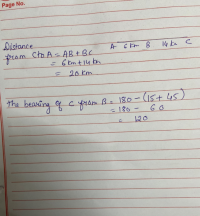 Page No.
Distance
from C to A = AB + BC A 6 km B 14 km C
= 6 km + 14 km
= 20 km
The bearing of C from B = 180 - (15 + 45)
= 180 - 60
= 120